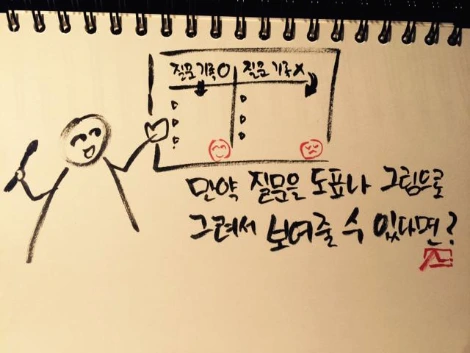 질문 기록 O 질문 기록 X
만약 질문을 도표나 그림으로
그려서 보여줄 수 있다면?